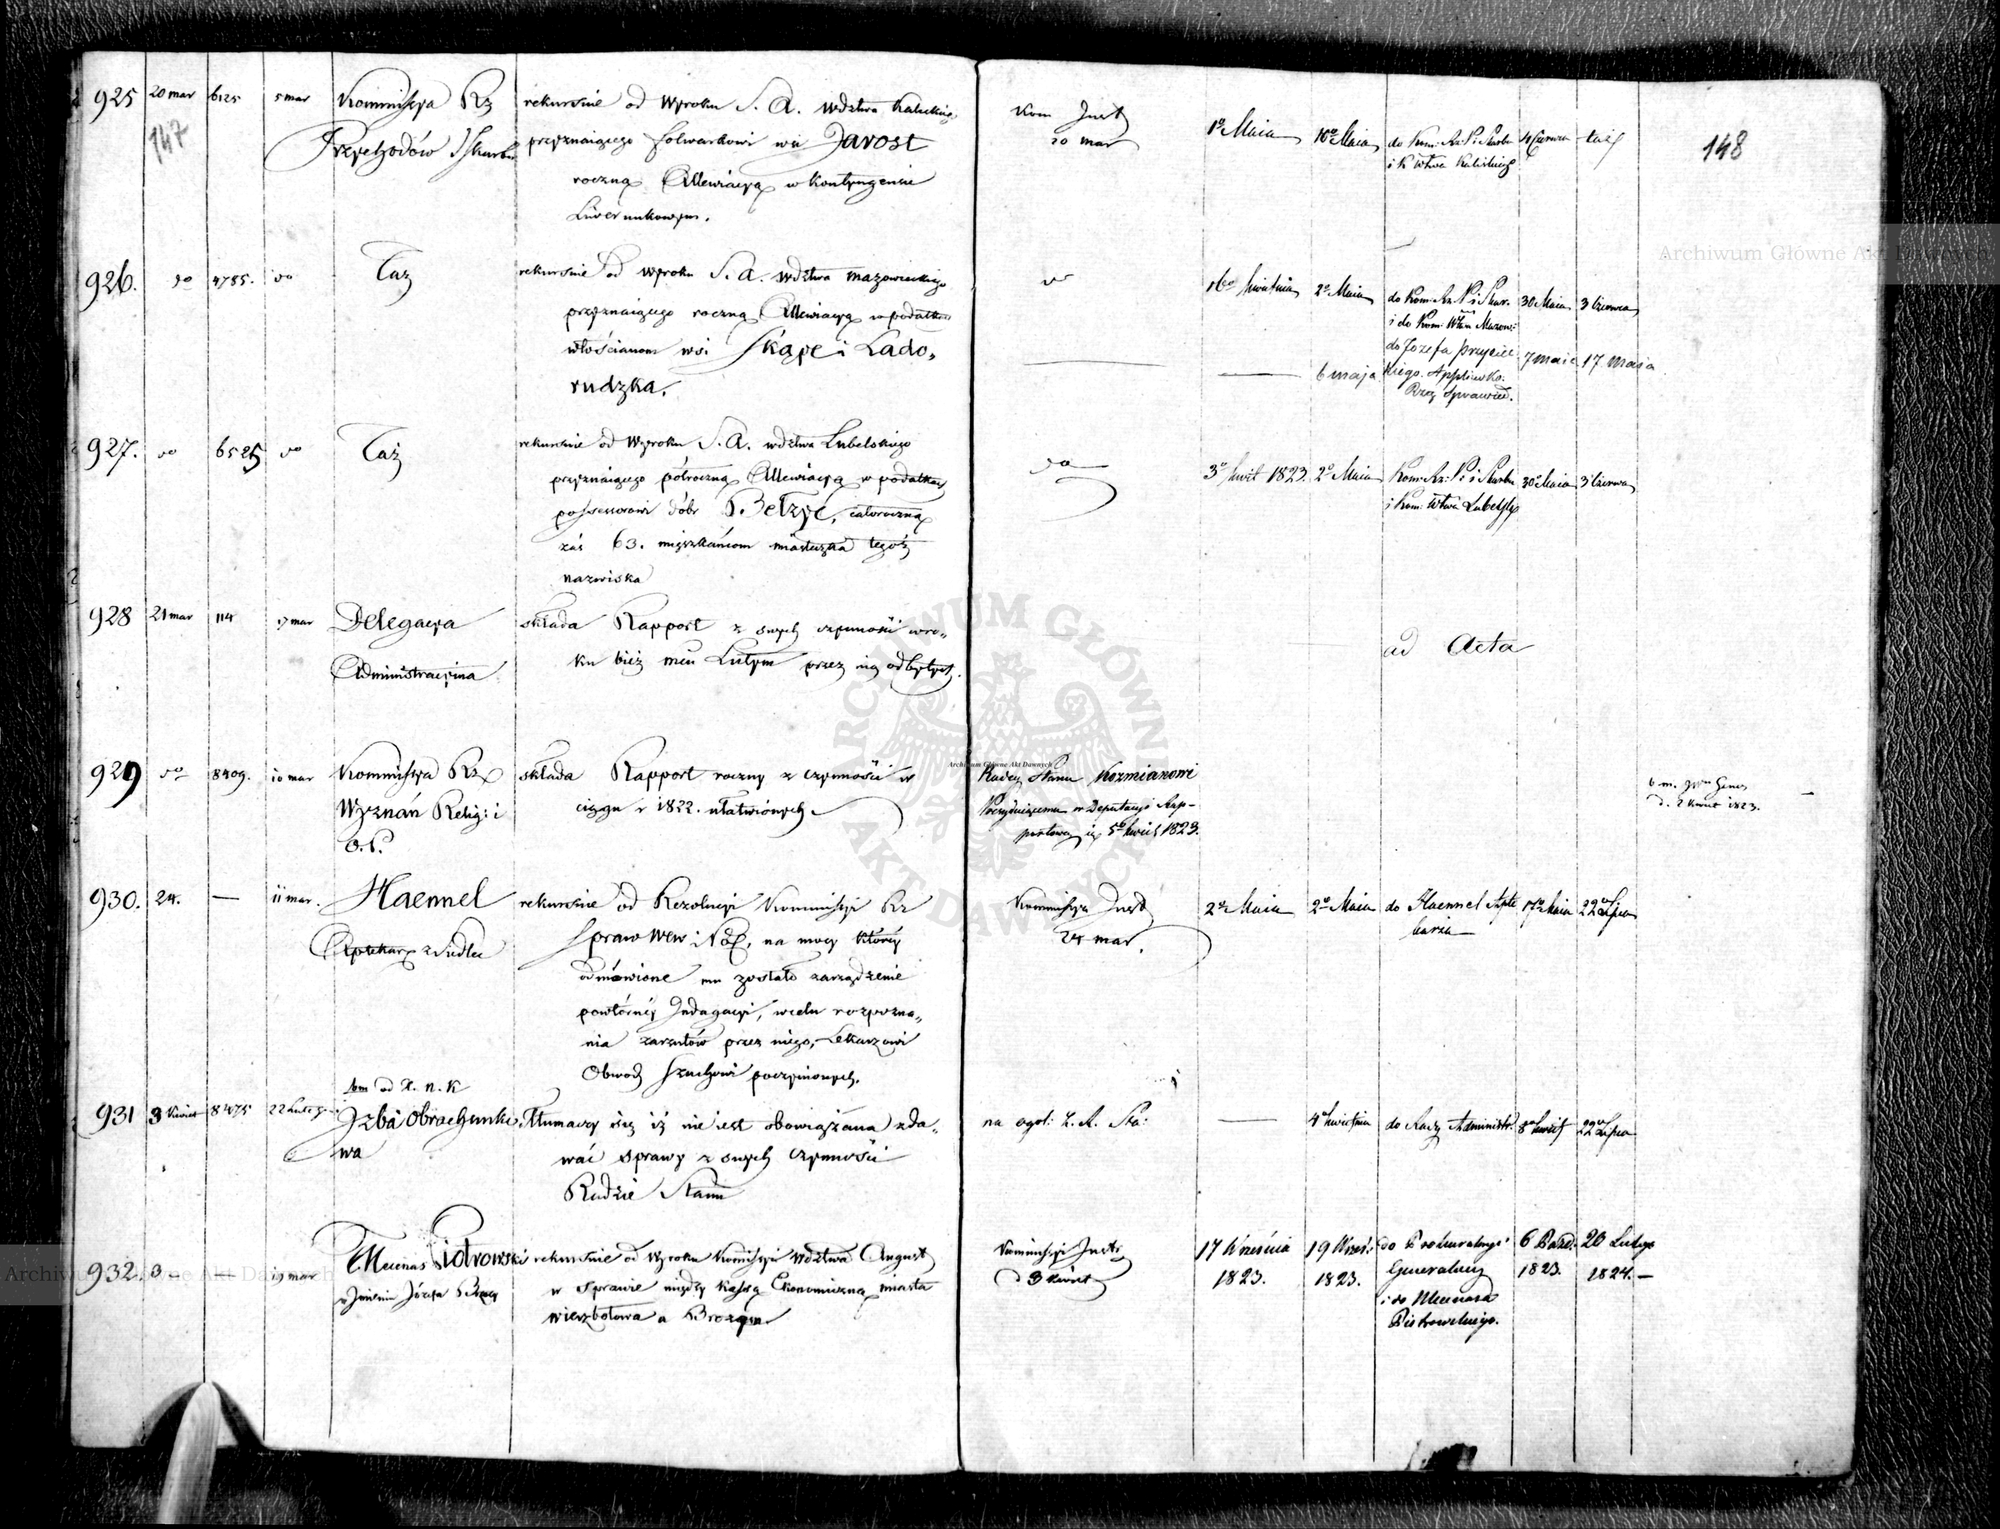 925 20 mar 6125 5 mar Kommissya Rz rekursuie od Wyroku S. A. wdztwa Kaliskiego
147 Przychodów i Skarbu przyznaiącego folwarkowi wsi Jarost
roczną Allewiacyą w Kontyngensie
Liwerunkowym.
Kom Just 1o Maia 16o Maia do Kom: Rz: P. i Skarbu 4 Czerwca taż 148
20 mar i K Wtwa Kaliskieg
926. do 4785. do Taż rekursuie od wyroku S. A. wdztwa mazowieckiego
przyznaiącego roczną Allewiacyą w podatkach
włościanom wsi Skąpe i Lado-
rudzka.
do 16o kwietnia 2o Maia do Kom: Rz. P. i Skar. 30 Maia 3 Czerwca
i do Kom: Wtwa Mazow:
6 maja do Józefa 7 maia 17 maja
kiego.
927. do 6525 do Taż rekursuie od Wyroku S. A. wdztwa Lubelskiego
przyznaiącego półroczną Allewiacyą w podatkach
possessorowi dóbr Bełżyc, całoroczną
zaś 63. mieszkańcom miasteczka tegoż
nazwiska
do 3o kwiet 1823. 2o Maia Kom: Rz: P. i Skarbu 30o Maia 3 Czerwca
i Kom: Wtwa Lubelsk
928 21 mar 114 17 mar Delegacya składa Rapport z swych czynności w ro-
Administracyina ku bież mcu Lutym przez nią odbytych.
ad Acta
929 do 8409. 10 mar Kommissya Rz składa Rapport roczny z czynności w
Wyznań Relig: i ciągu r 1822. ułatwionych
O. P.
Radcy Stanu Kozmianowi
Prezyduiącemu w Deputacyi Rap-
portowey 5o kwiet 1823.
d. 2 Kwiet 1823.
930. 24. — 11 mar. Haennel rekursuie od Rezolucyi Kommissyi Rz
Aptekarz z Siedlec Spraw Wew i Pol, na mocy którey
odmówione mu zostało zarządzenie
powtórney Indagacyi, wcelu rozpozna-
nia zarzutów przez niego, Lekarzowi
Obwod Szuchowi poczynionych.
Kommissya Just 2o Maia 2o Maia do Haennel Apte 17o Maia 22 Lipca
24 mar. karza
bm od X. n. K
931 3 Kwiet 8475 22 Luteg Izba Obrachunko Tłumaczy się iż nie iest obowiązana zda-
wa wać sprawy z swych czynności
Radzie Stanu
na ogól: Z. R. Sta: — 4 kwietnia do Rady Administr. 8 kwiet 22 Lipca
932. 3 — 19 mar Mecenas Piotrowski rekursuie od Wyroku Komissyi Wdztwa August
w Imieniu Józefa w Sprawie między Kassą Ekonomiczną miasta
Wierzbołowa a
Kommissyi Just 17 Września 19 Wrześ: do Prokuratoryi 6 Paźd: 20 Lutego
d 3 kwiet 1823. 1823. Generalney 1823. 1824. —
i do Mecenasa
Piotrowskiego.
Archiwum Główne Akt Dawnych
Archiwum Główne Akt Dawnych
Archiwum Główne Akt Dawnych
ARCHIWUM GŁÓWNE AKT DAWNYCH